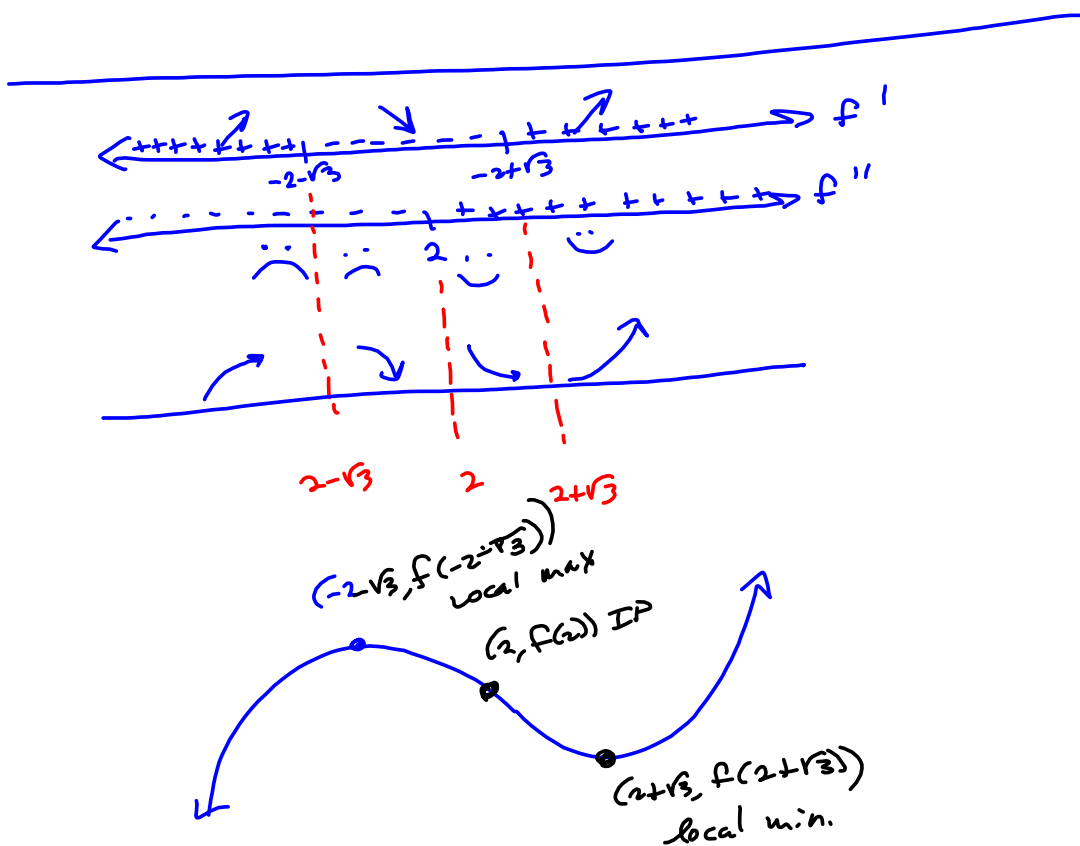 +++++++ - - - - - - + + + + + + f'
-2-√3 -2+√3
- - - - - - - - - + + + + + + + + + + f''
2
2-√3 2 2+√3
(-2-√3, f(-2-√3))
local max
(2, f(2)) IP
(2+√3, f(2+√3))
local min.